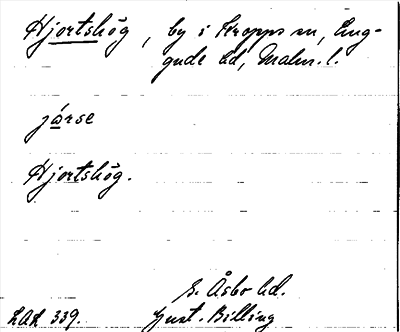 Hjortshög, by i Kropps sn, Lug-
gude hd, Malm. l.
járse
Hjortshög.
S. Åsbo hd.
LAL 339. Gust. Billing